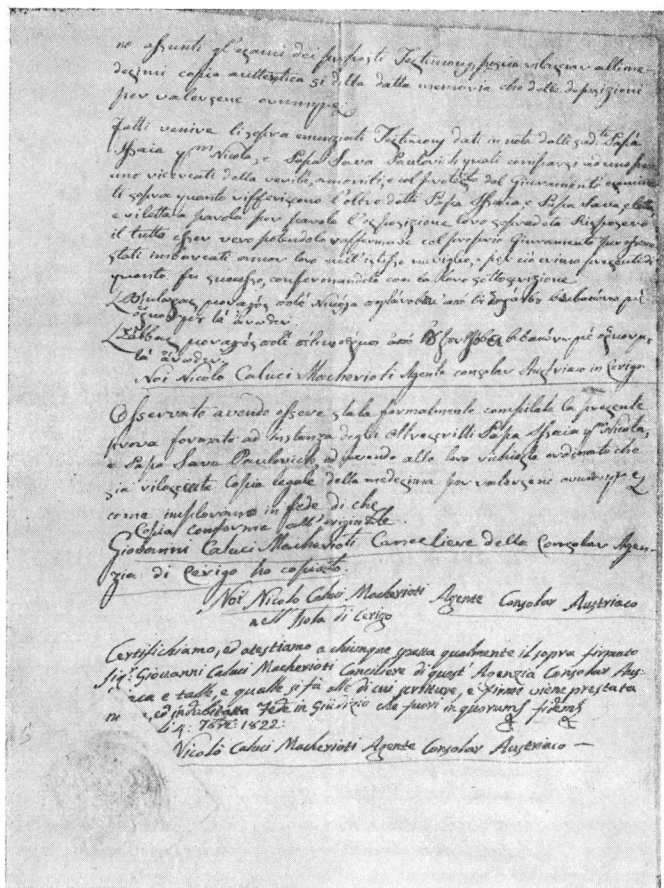 no assunti gl'esami dei proposti Testimonj, possia rilasciar alli me-
desimi copia autentica sì della detta memoria che delle deposizioni
per valersene ovunque
Fatti venire li sopra enunziati Testimonj dati in nota dalli sud.ti Papà
Isaia q.m Nicola, e Papà Sava Paulovich quali comparsi ad uno per
uno ricercati della verità, amoniti, e col protesto del Giuramento esamina-
ti sopra quanto riferiscono l'oltredetti Papà Isaia, e Papà Sava, e letta
e riletta a parola per parola l'esposizione loro sopradetta Risposero
il tutto esser vero potendolo raffermare col proprio Giuramento per essere
stati imbarcati ancor loro nell'istesso naviglio, e per ciò erino presenti di
quanto fu successo, confermandolo con la loro sottoscrizione.
μοναχός
τά άνωθεν
Σάββας μοναχός
τά άνωθεν
Noi Nicolò Caluci Macherioti Agente consolar Austriaco in Cerigo
Osservato avendo essere stata formalmente compilata la presente
prova formata ad instanza degli oltrescritti Papà Isaia q.m Nicola,
e Papà Sava Paulovich ed avendo alle loro richieste ordinato che
sia rilasciata Copia legale della medesima per valersene ovunque
come implorano in fede di che
Copia conforme all'originale
Giovanni Caluci Macherioti Canceliere della Consolar Agen-
zia di Cerigo ho copiato.
Noi Nicolò Caluci Macherioti Agente Consolar Austriaco
nell'Isola di Cerigo
Certifichiamo, ed atestiamo a chiunque spetta qualmente il sopra firmato
Sig.r Giovanni Caluci Macherioti Canciliere di quest'Agenzia Consolar Aus-
iaca e talle, e qualle si fà alle di cui scritture, e firme viene prestata
ed indubitatta Fede in Giudizio che fuori in quorum fidem
li 4: 7bre: 1822:
Nicolò Caluci Macherioti Agente Consolar Austriaco —